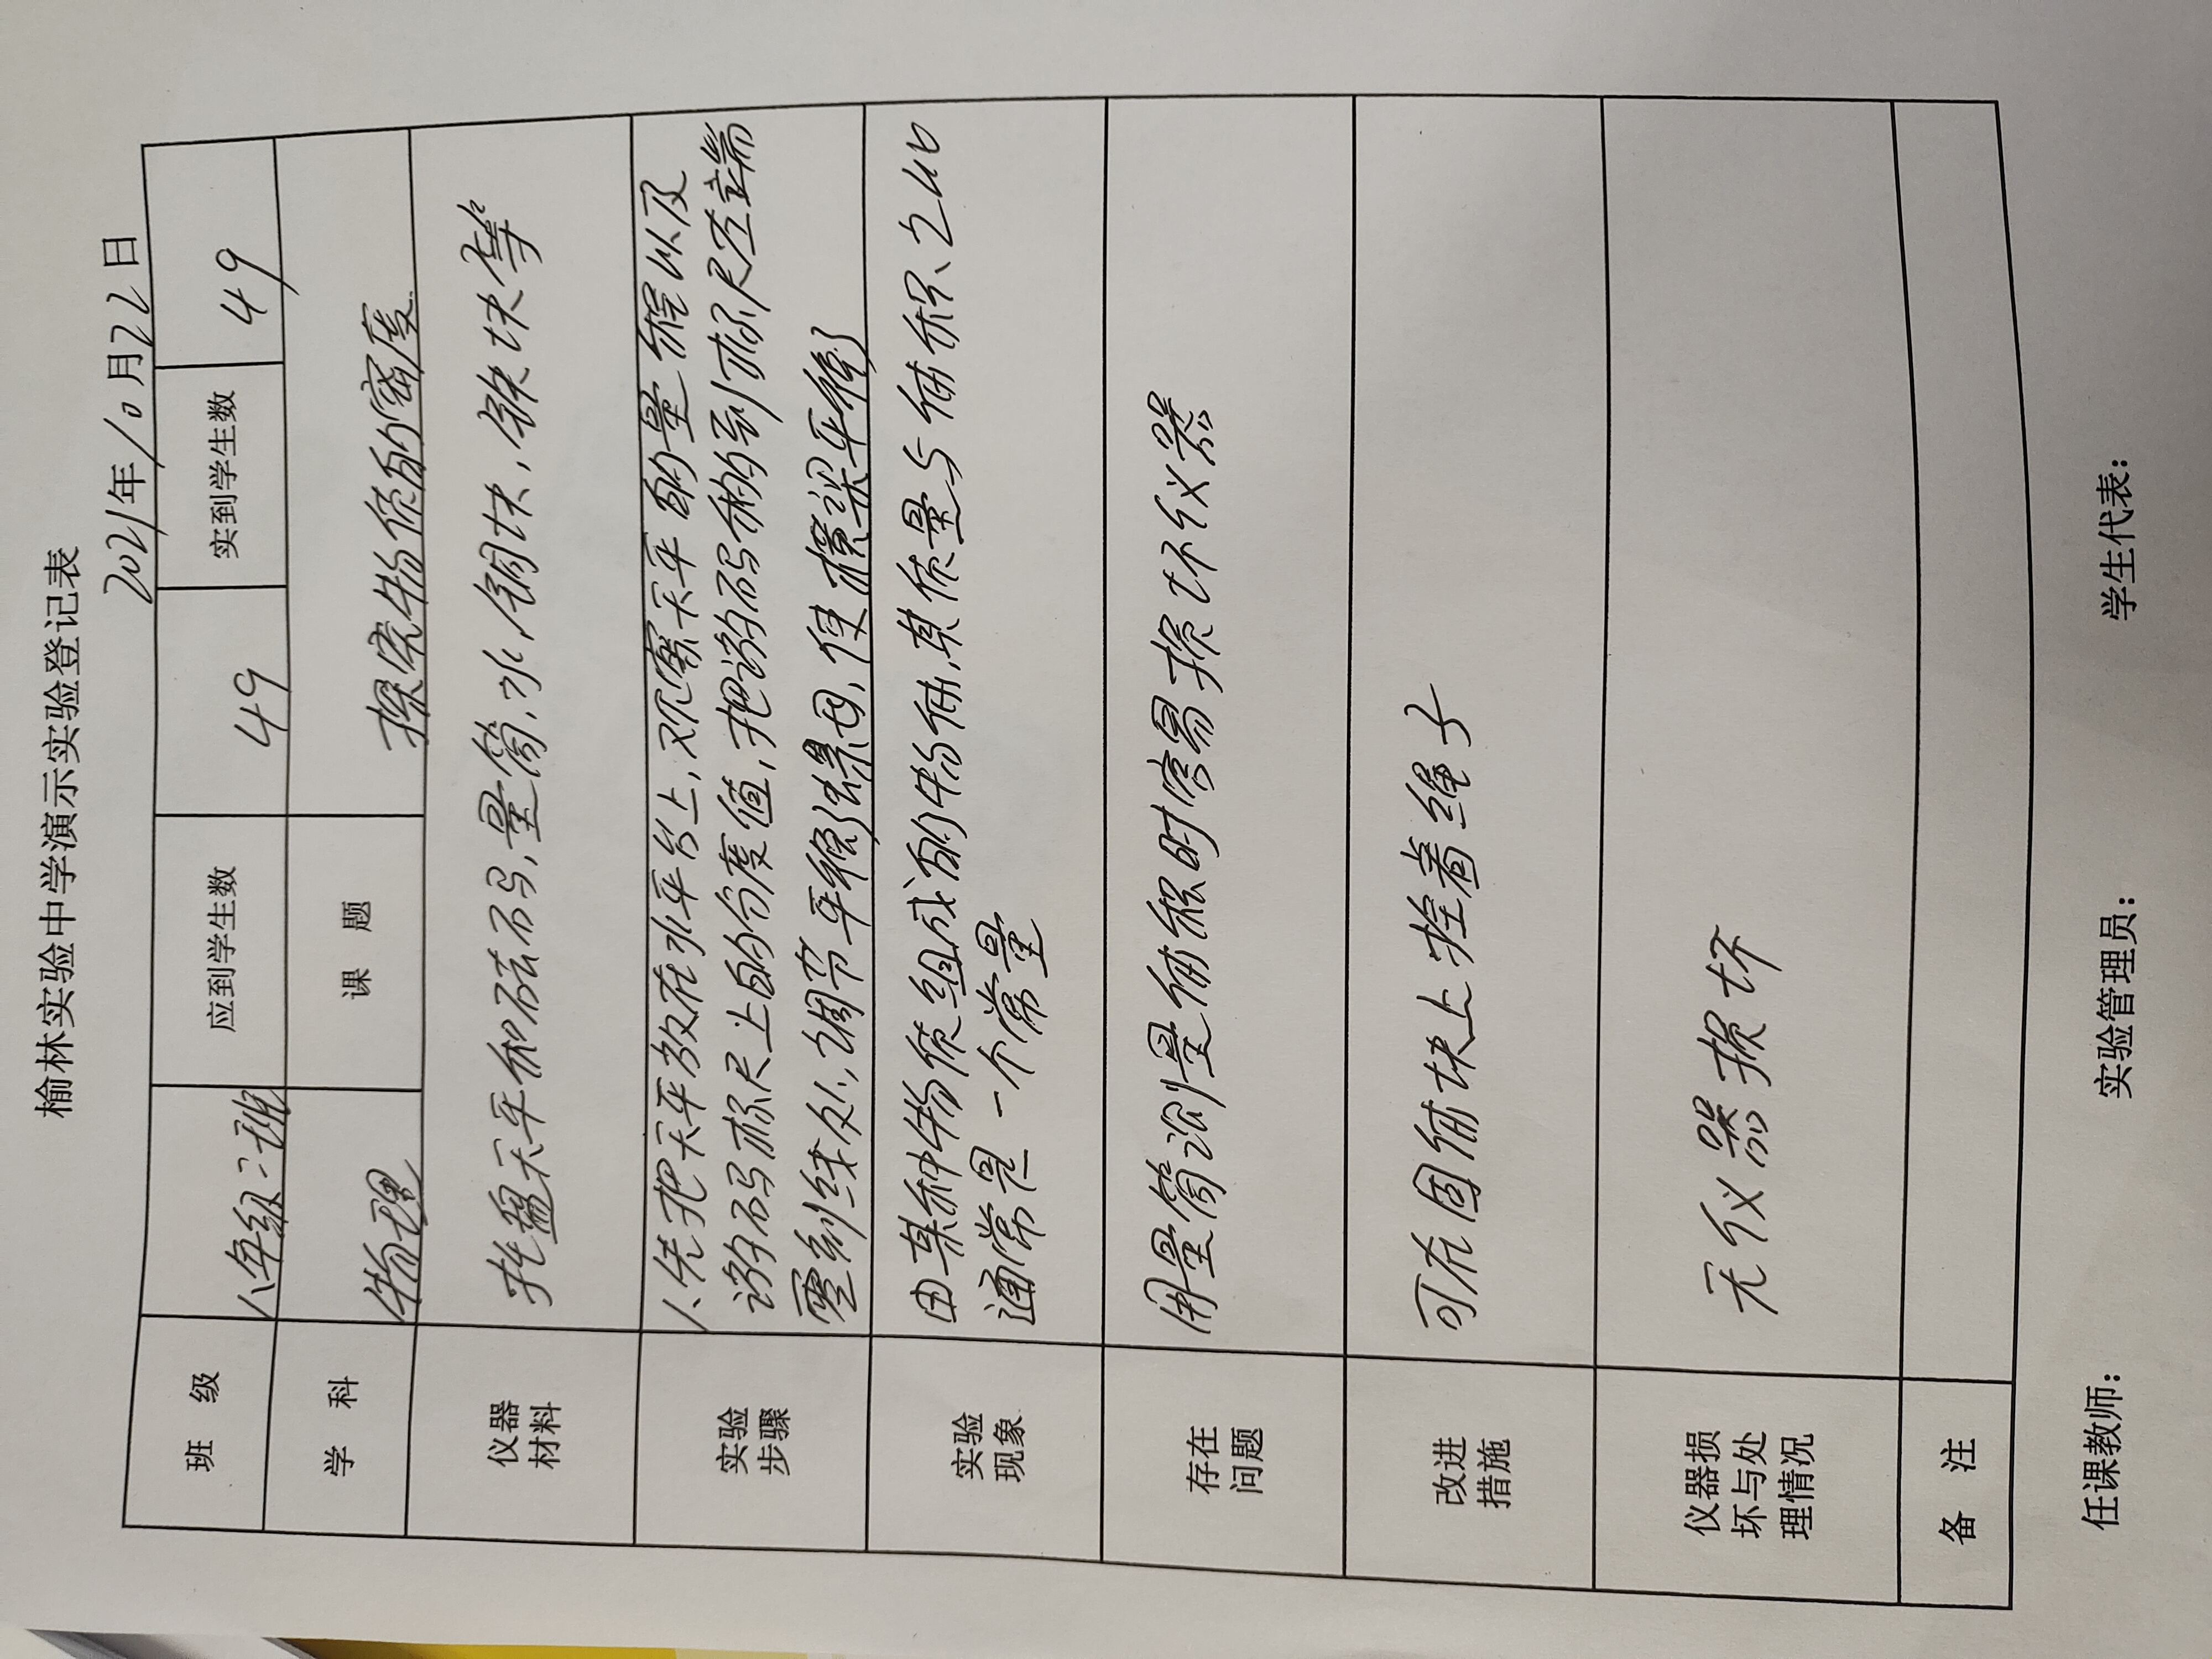 榆林实验中学演示实验登记表
2021年10月22日
班 级 八年级二班 应到学生数 49 实到学生数 49
学 科 物理 课 题 探究物质的密度
仪器材料 托盘天平和砝码,量筒,水,铜块,铁块等
实验步骤 1、先把天平放在水平台上,观察天平的量程以及
游码标尺上的分度值,把游码移到标尺左端
零刻线处,调节平衡螺母,使横梁平衡
实验现象 由某种物质组成的物体,其质量与体积之比
通常是一个常量
存在问题 用量筒测量体积时容易损坏仪器
改进措施 可在固体块上拴着绳子
仪器损坏与处理情况 无仪器损坏
备 注
任课教师: 实验管理员: 学生代表: